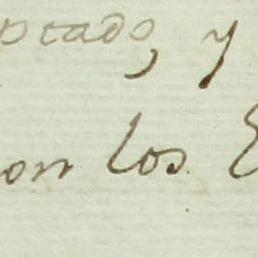 ptado, y
on los